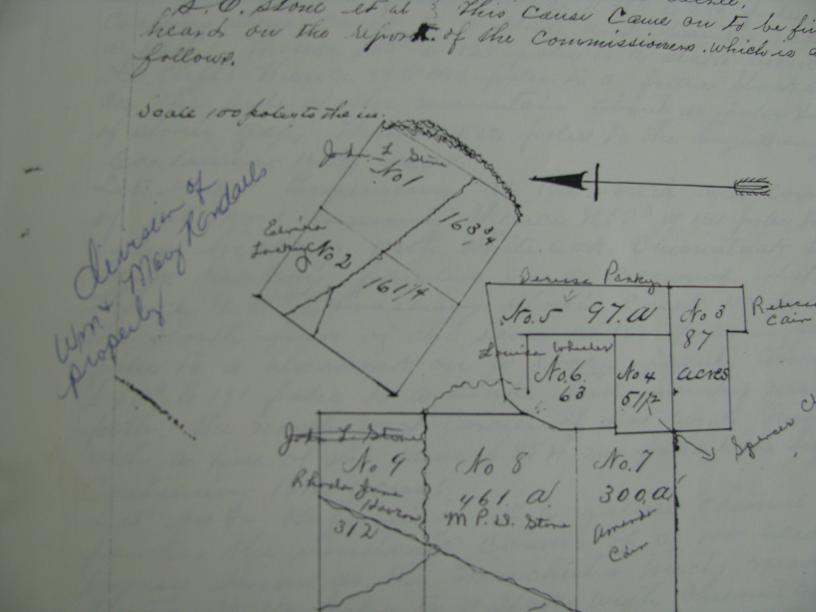 S. O. Stone et al } This Cause Came on to be
heard on the report of the Commissioners. which is
follows.
Scale 100 poles to the in.
Division of
Wm & Mary Randalls
property
John L Stone
No 1
163 3/4
No 2
161 1/4
Panky
No. 5 97. a
No 3
87
acres
Cain
Louisa Wheeler
No. 6
63
No 4
51 1/2
Spencer
John L. Stone
No 9
Rhoda Jane
312
No 8
461. a.
M P. D. Stone
No. 7
300. a
Amanda
Cain